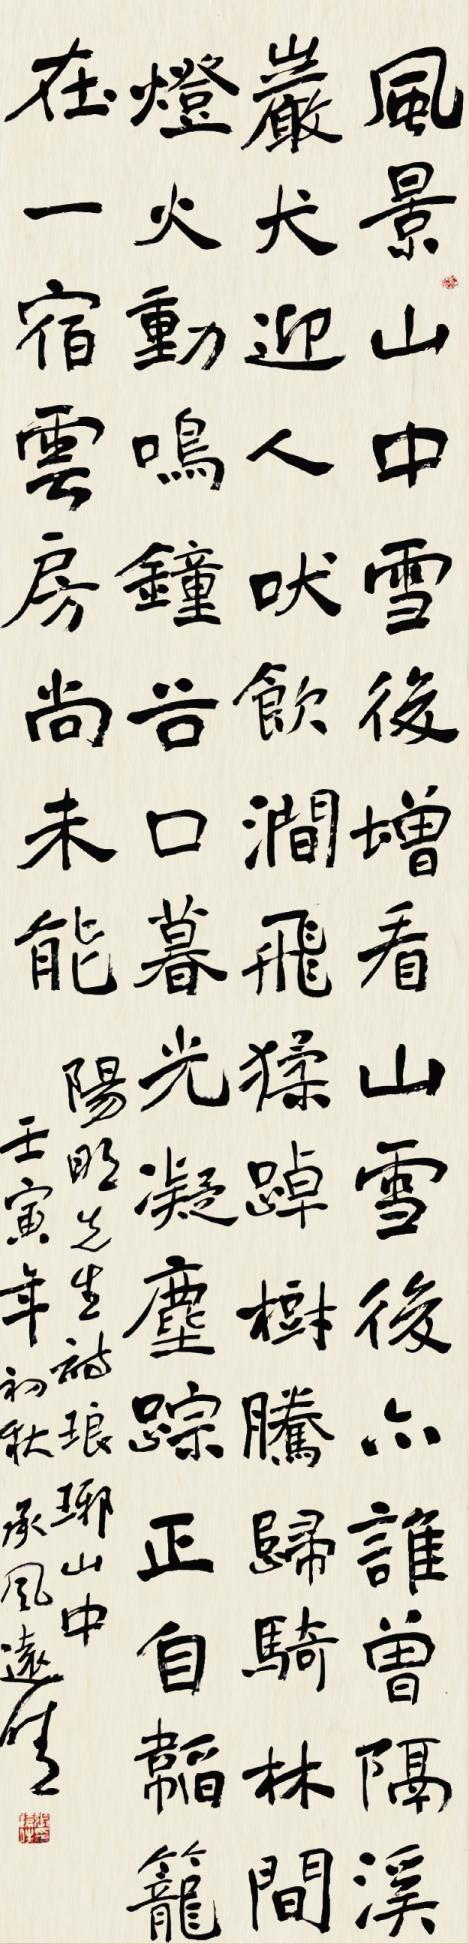 風景山中雪後增看山雪後亦誰曾隔溪
巖犬迎人吠飲澗飛猱踔樹騰歸騎林間
燈火動鳴鐘谷口暮光凝塵踪正自韜籠
在一宿雲房尚未能
陽明先生詩琅琊山中
壬寅年初秋 承風遠